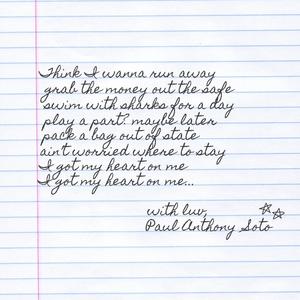 Think I wanna run away
grab the money out the safe
swim with sharks for a day
play a part maybe later
pack a bag out of state
ain't worried where to stay
I got my heart on me
I got my heart on me...
with luv,
Paul Anthony Soto